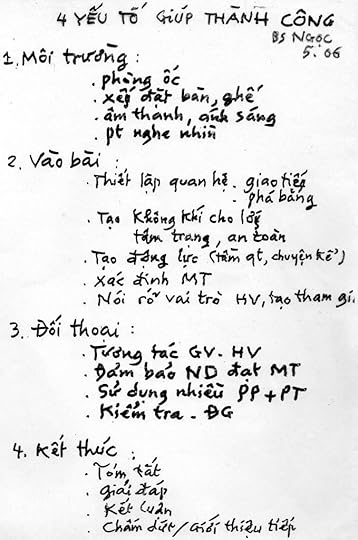 4 YẾU TỐ GIÚP THÀNH CÔNG
BS NGỌC
5.06
1. Môi trường :
. phòng ốc
. xếp đặt bàn, ghế
. âm thanh, ánh sáng
. pt nghe nhìn
2. Vào bài :
. Thiết lập quan hệ . giao tiếp
. phá băng
. Tạo không khí cho lớp
tâm trạng, an toàn
. Tạo động lực (tầm qt, chuyện kể)
. Xác định MT
. Nói rõ vai trò HV, tạo tham gia.
3. Đối thoại :
. Tương tác GV - HV
. Đảm bảo ND đạt MT
. Sử dụng nhiều PP + PT
. Kiểm tra - ĐG
4. Kết thúc :
. Tóm tắt
. giải đáp
. Kết luận
. Chấm dứt/Giới thiệu tiếp